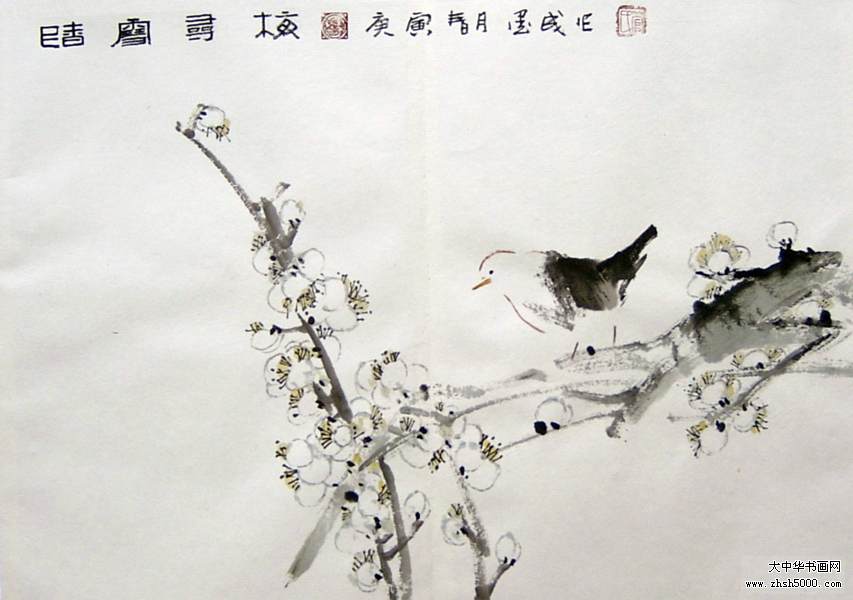 晴雪尋梅 庚寅春月墨成作
大中华书画网
www.zhsh5000.com